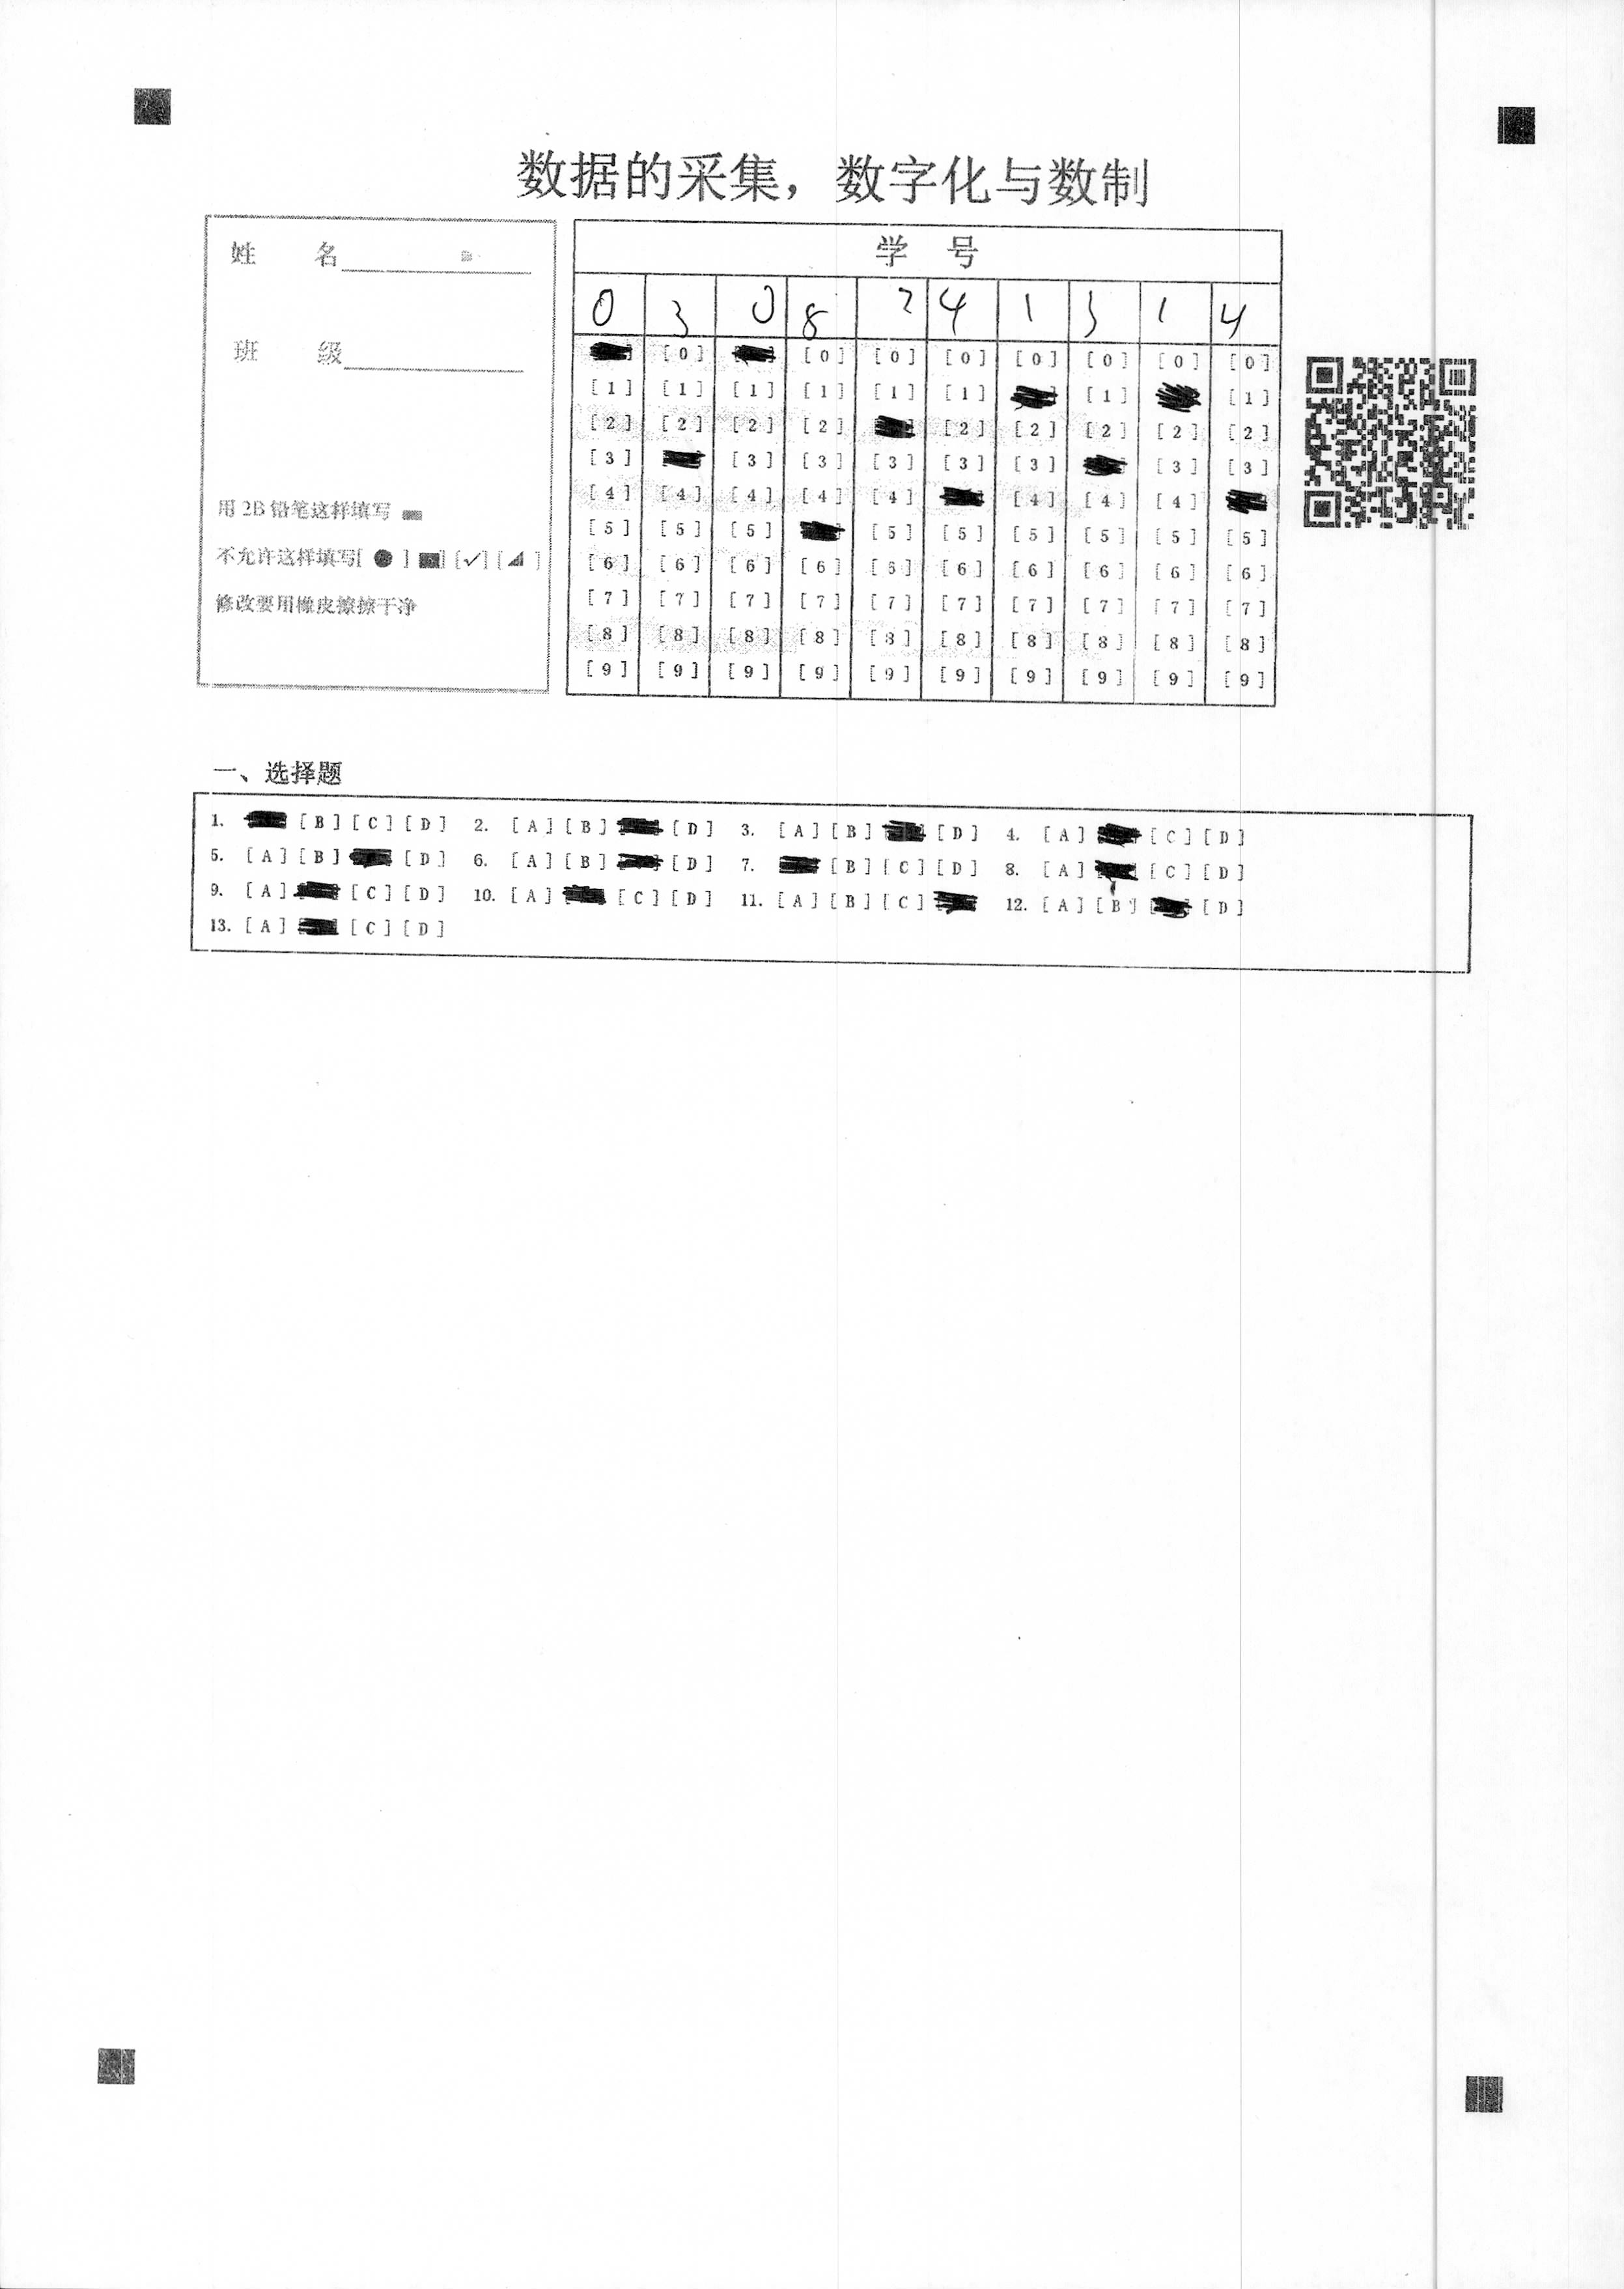 数据的采集，数字化与数制
姓 名
班 级
用 2B 铅笔这样填写
不允许这样填写[ ● ] [■] [✓] [◢ ]
修改要用橡皮擦擦干净
学 号
0 3 0 8 2 4 1 3 1 4
[0] [0] [0] [0] [0] [0] [0] [0]
[1] [1] [1] [1] [1] [1] [1] [1]
[2] [2] [2] [2] [2] [2] [2] [2] [2]
[3] [3] [3] [3] [3] [3] [3] [3]
[4] [4] [4] [4] [4] [4] [4] [4]
[5] [5] [5] [5] [5] [5] [5] [5] [5]
[6] [6] [6] [6] [6] [6] [6] [6] [6] [6]
[7] [7] [7] [7] [7] [7] [7] [7] [7] [7]
[8] [8] [8] [8] [8] [8] [8] [8] [8] [8]
[9] [9] [9] [9] [9] [9] [9] [9] [9] [9]
一、选择题
1. [B] [C] [D] 2. [A] [B] [D] 3. [A] [B] [D] 4. [A] [C] [D]
5. [A] [B] [D] 6. [A] [B] [D] 7. [B] [C] [D] 8. [A] [C] [D]
9. [A] [C] [D] 10. [A] [C] [D] 11. [A] [B] [C] 12. [A] [B] [D]
13. [A] [C] [D]